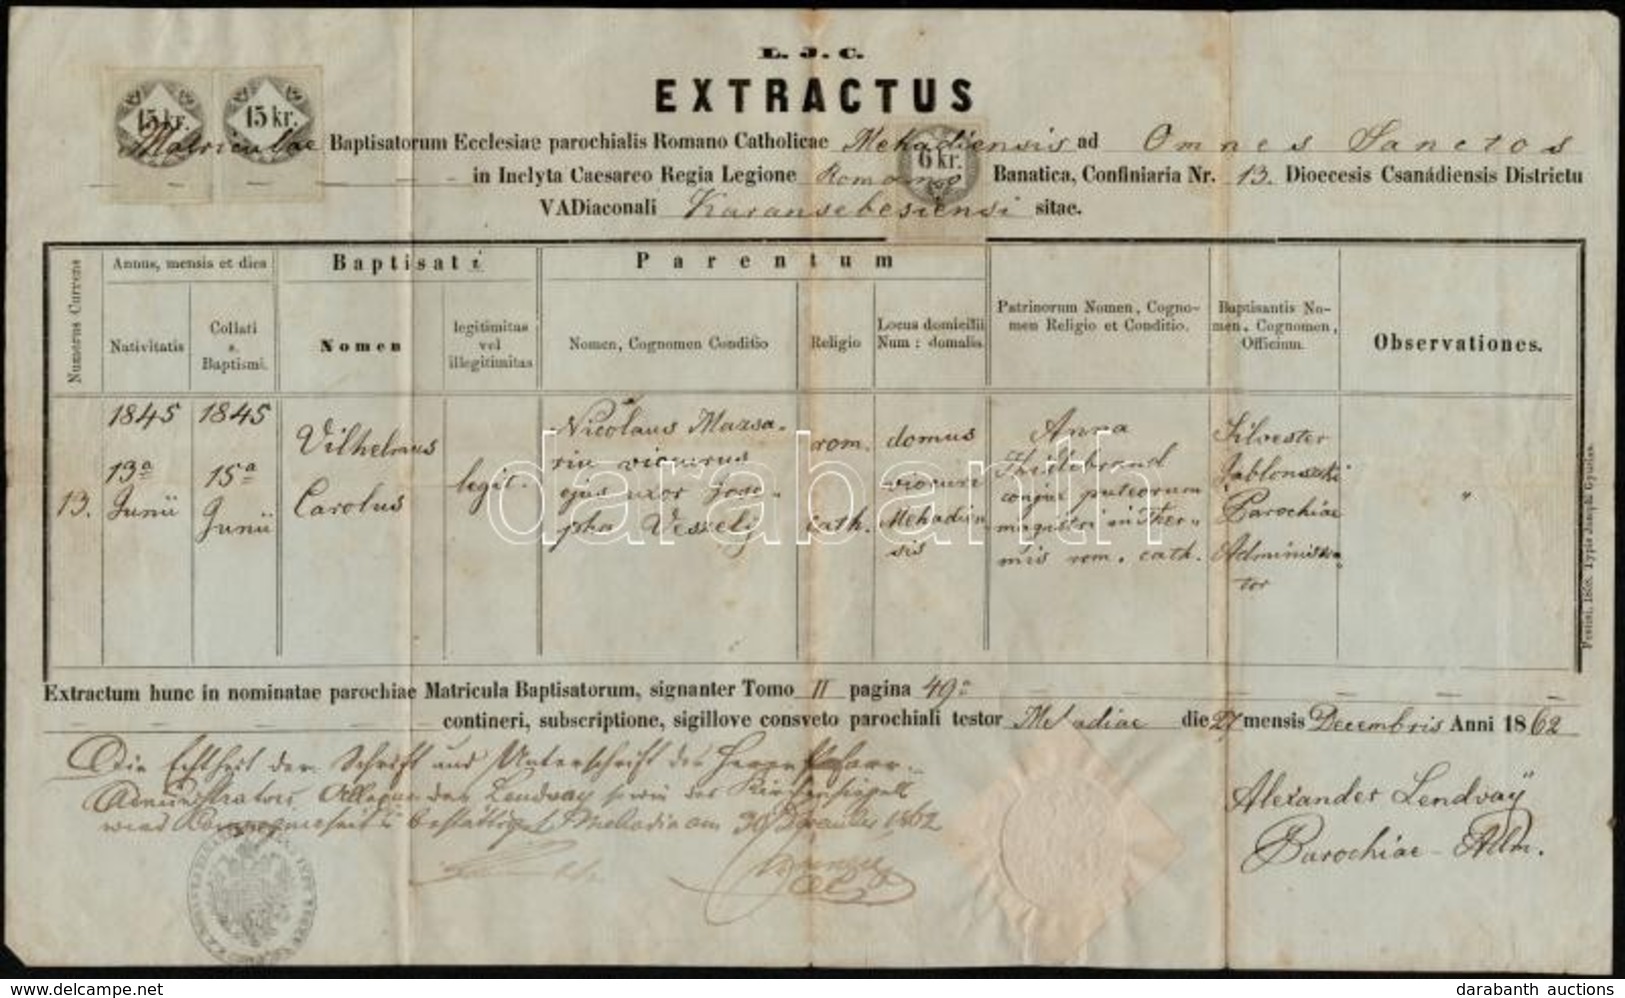 L. J. C.
EXTRACTUS
15 kr. 15 kr.
Matriculae Baptisatorum Ecclesiae parochialis Romano Catholicae Mehadiensis ad Omnes Sanctos
6 kr.
in Inclyta Caesareo Regia Legione Romano Banatica, Confiniaria Nr. 13. Dioecesis Csanádiensis Districtu
VADiaconali Karansebesiensi sitae.
Numerus Currens
Annus, mensis et dies
Baptisati
Parentum
Nativitatis
Collati s. Baptismi.
Nomen
legitimitas vel illegitimitas
Nomen, Cognomen Conditio
Religio
Locus domicilii Num: domalis
Patrinorum Nomen, Cognomen Religio et Conditio.
Baptisantis Nomen, Cognomen, Officium.
Observationes.
13.
1845
13a
Junii
1845
15a
Junii
Vilhelmus
Carolus
legit.
Nicolaus Marsa-
ejus uxor jose-
pha Veszely
rom.
cath.
domus
Mehadien
sis
Anna
Hildebrand
conjux puteorum
magistri in Ther-
mis rom. cath.
Silvester
Jablonszki
Parochiae
Administra-
tor
"
Pestini, 1858. Typis Josephi Gyurian.
Extractum hunc in nominatae parochiae Matricula Baptisatorum, signanter Tomo II pagina 49a
contineri, subscriptione, sigillove consveto parochiali testor Mehadiae die 27 mensis Decembris Anni 1862
Die Echtheit der Schrift und Unterschrift des Herrn Pfarr-
Administrators Lendvay sowie des Kirchensiegels
wird bestättiget Mehadia am 30 Dezember 1862
Alexander Lendvaÿ
Parochiae Adm.
darabanth
delcampe.net
darabanth auctions